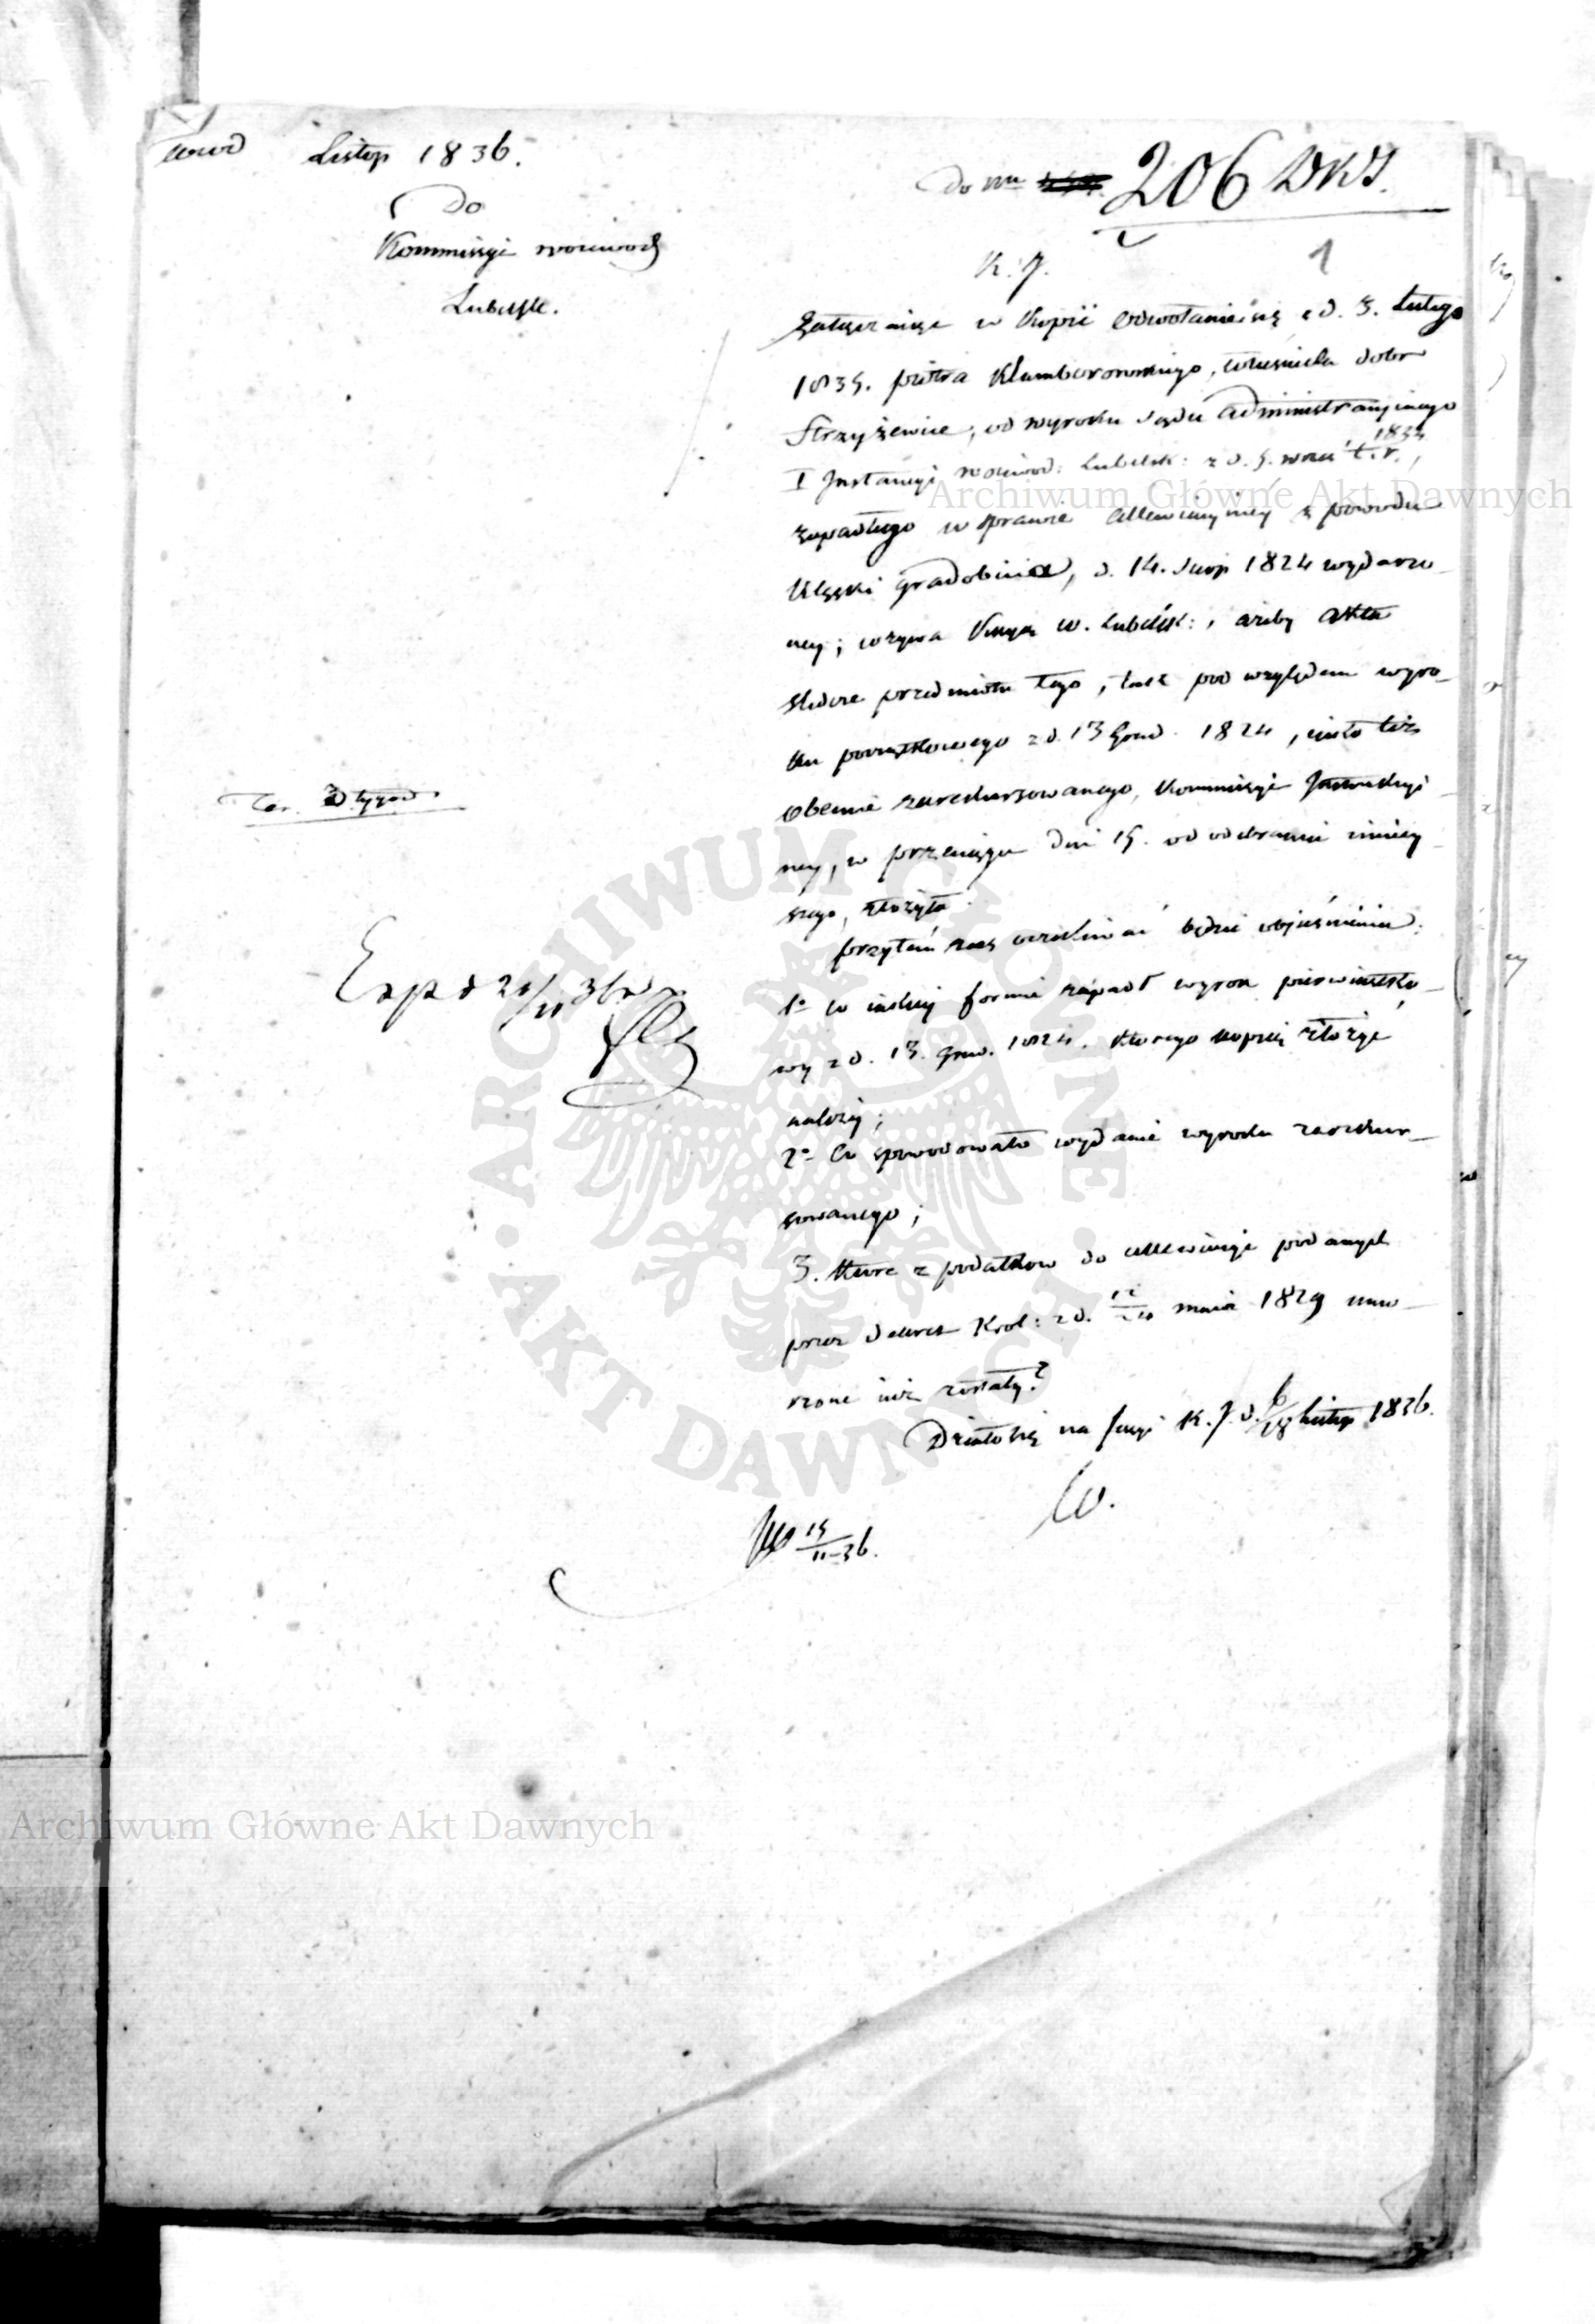 Listop 1836.
Do
Kommissyi woiewodz
Lubelsk.
Do Nru 206 DKI.
1
K. J.
Załączaiąc w kopii odwołanie się z d. 3. Lutego
1835. Piotra właściciela dobr
Strzyżewice, od wyroku Sądu Administracyinego
I Instancyi woiewod: Lubelsk: z d. 5. wrześ 1833 t. r.,
zapadłego w sprawie allewiacyiney z powodu
klęski gradobicia, d. 14. Sierp 1824 wydarzo-
ney; wzywa Kmya W. Lubelsk:, ażeby akta
śledcze przedmiotu tego, tak pod względem wyro-
ku początkowego z d. 13 Grud. 1824, iako też
obecnie zarekursowanego, Kommissyi Instrukcyi-
ney, w przeciągu dni 15. od odebrania niniey-
szego, złożyła.
Przytém zaś oczekiwać będzie obiaśnienia:
1o w iakiey formie zapadł wyrok pierwiastko-
wy z d. 13. Grud. 1824. którego kopią złożyć
należy;
2o Co spowodowało wydanie wyroku zarekur-
sowanego;
3. Które z podatków do allewiacyi podanych
przez Dekret Król: z d. 12/24 maia 1829 umo-
rzone iuż zostały?
Działo się na sessyi K. J. d. 6/18 Listop 1836.
Ter. 2 tygod.
Exp d 21/11 36
15/11-36.
Archiwum Główne Akt Dawnych
ARCHIWUM GŁÓWNE
• AKT DAWNYCH •
Archiwum Główne Akt Dawnych